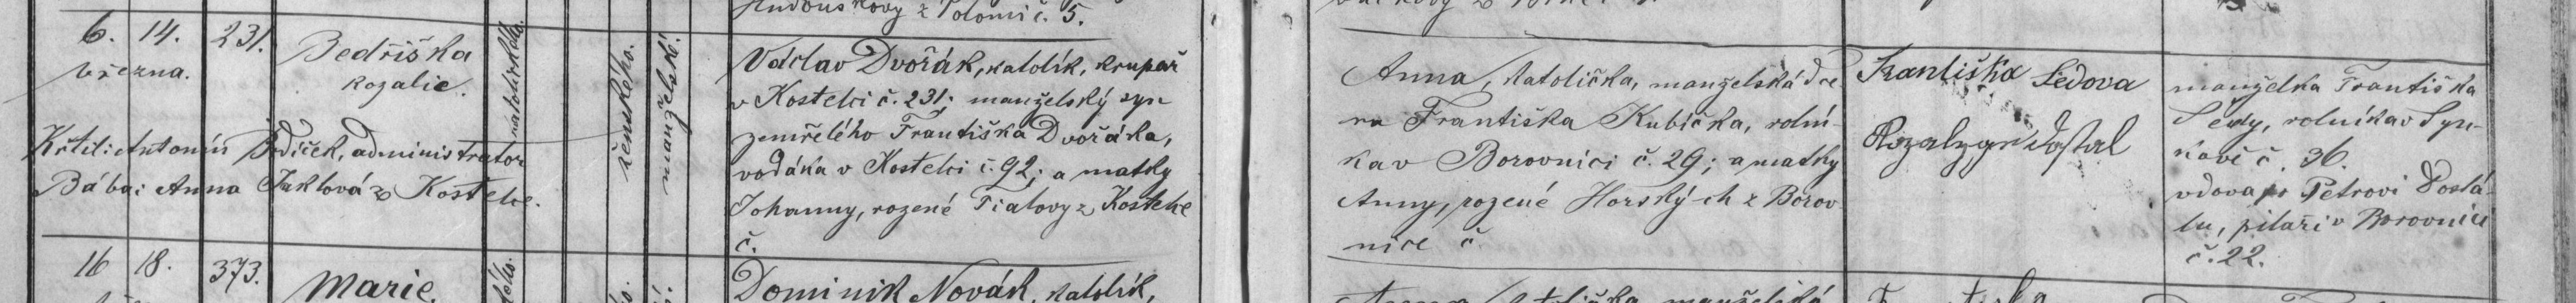 z Polomi č. 5.
6. 14. 231.
března.
Bedřiška
Rozalie.
ženského.
manželské.
Václav Dvořák, katolík, krupař
v Kostelci č. 231; manželský syn
zemřelého Františka Dvořáka,
vodáka v Kostelci č. 92; a matky
Johanny, rozené Fialovy z Kostelce
č.
Anna, katolička, manželská dce-
ra Františka Kubíčka, rolní-
ka v Borovnici č. 29; a matky
Anny, rozené Horských z Borov-
nice č.
Františka Šedova
Rozalie Dostal
manželka Františka
Šedy, rolníka v Syn-
kově č. 36.
vdova po Petrovi Dostá-
lu, pilaři v Borovnici
č. 22.
Křtil: Antonín administrator
Bába: Anna Jaklová z Kostelce.
16 18. 373.
Marie,
Dominik Novák, katolík,